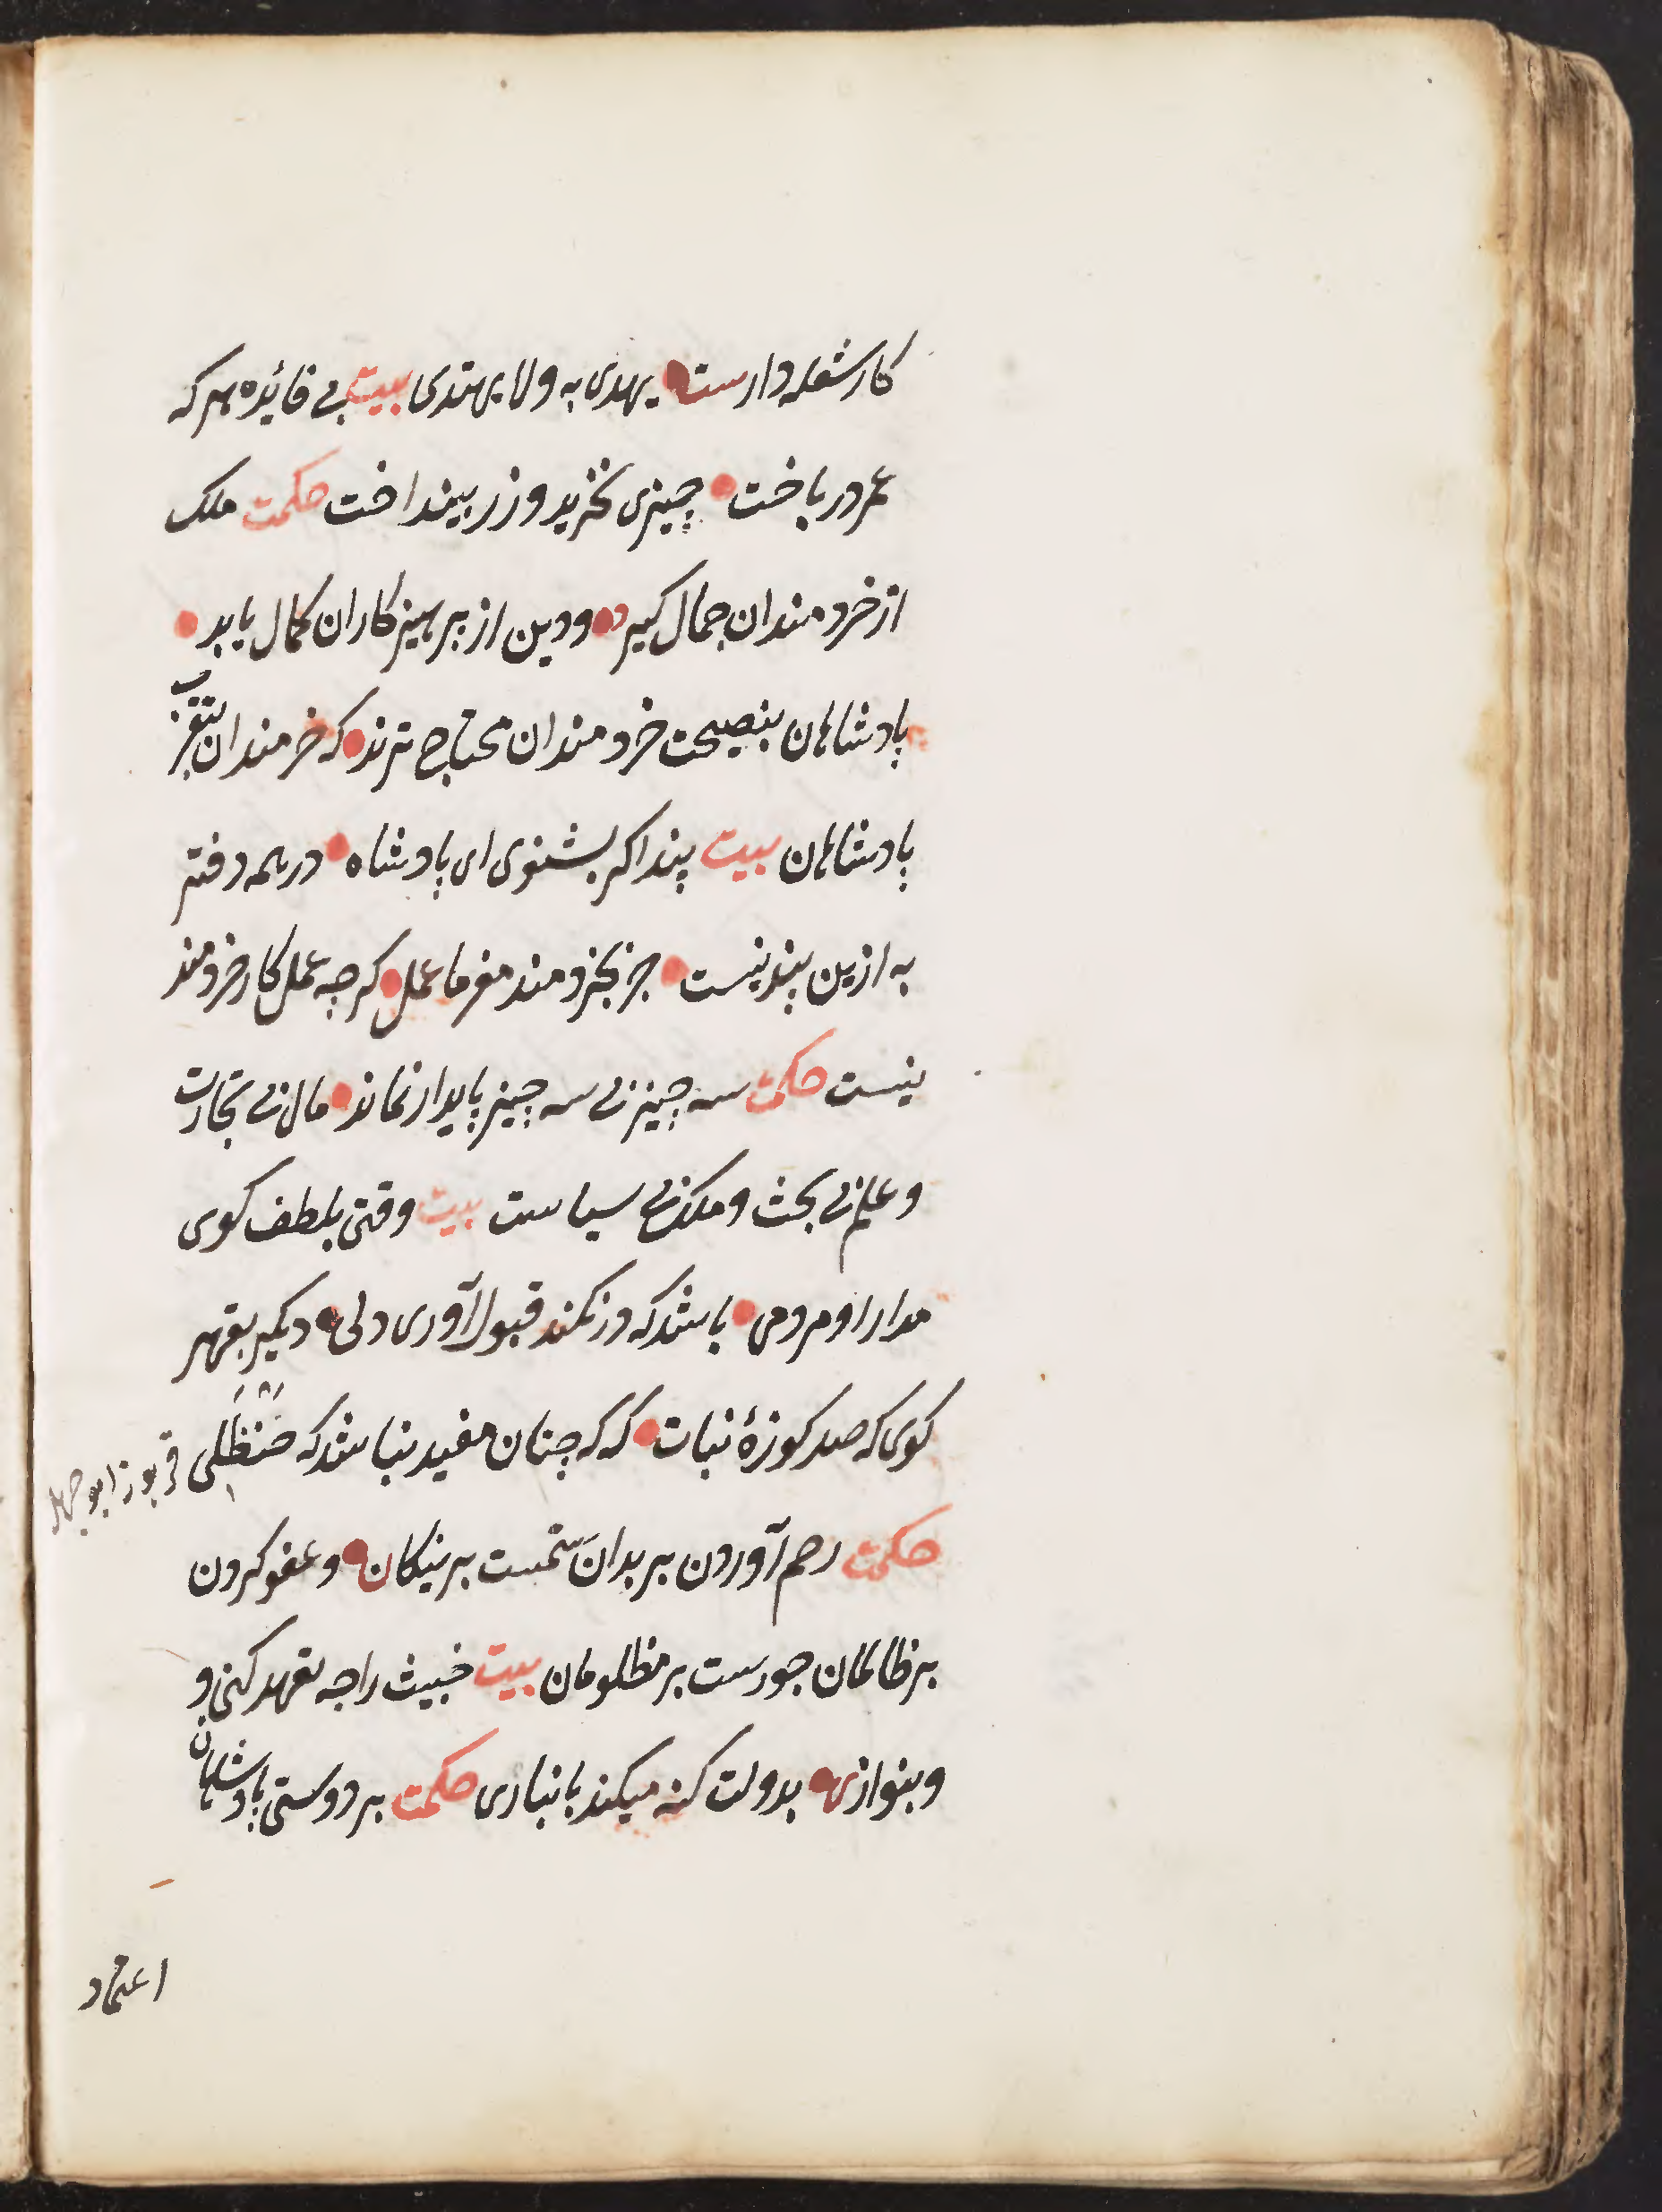 کار شعله دارست یهدی به ولا یهتدی بیت بی فائده هر که
عمر درباخت چیزی نخرید و زر بینداخت حکمت ملک
از خردمندان جمال کیرد و دین از پرهیزکاران کمال یابد
پادشاهان بنصیحت خردمندان محتاج ترند که خرمندان بتقرب
پادشاهان بیت پند اکر بشنوی ای پادشاه در همه دفتر
به ازین پند نیست جز بخردمند مفرما عمل کرچه عمل کار خردمند
نیست حکمت سه چیز بی سه چیز پایدار نماند مال بی تجارت
و علم بی بحث و ملک بی سیاست بیت وقتی بلطف کوی
مدارا و مردمی باشد که در کمند قبول آوری دلی دیکر بقهر
کوی که صد کوزهٔ نبات که که چنان مفید نباشد که حنظلی
قربوز ابو جهل
حکمت رحم آوردن بر بدان ستمست بر نیکان و عفو کردن
بر ظالمان جورست بر مظلومان بیت خبیث را چه تعهد کنی و
و بنوازی بدولت کنه میکند بانباری حکمت بر دوستی پادشاهان
اعتماد